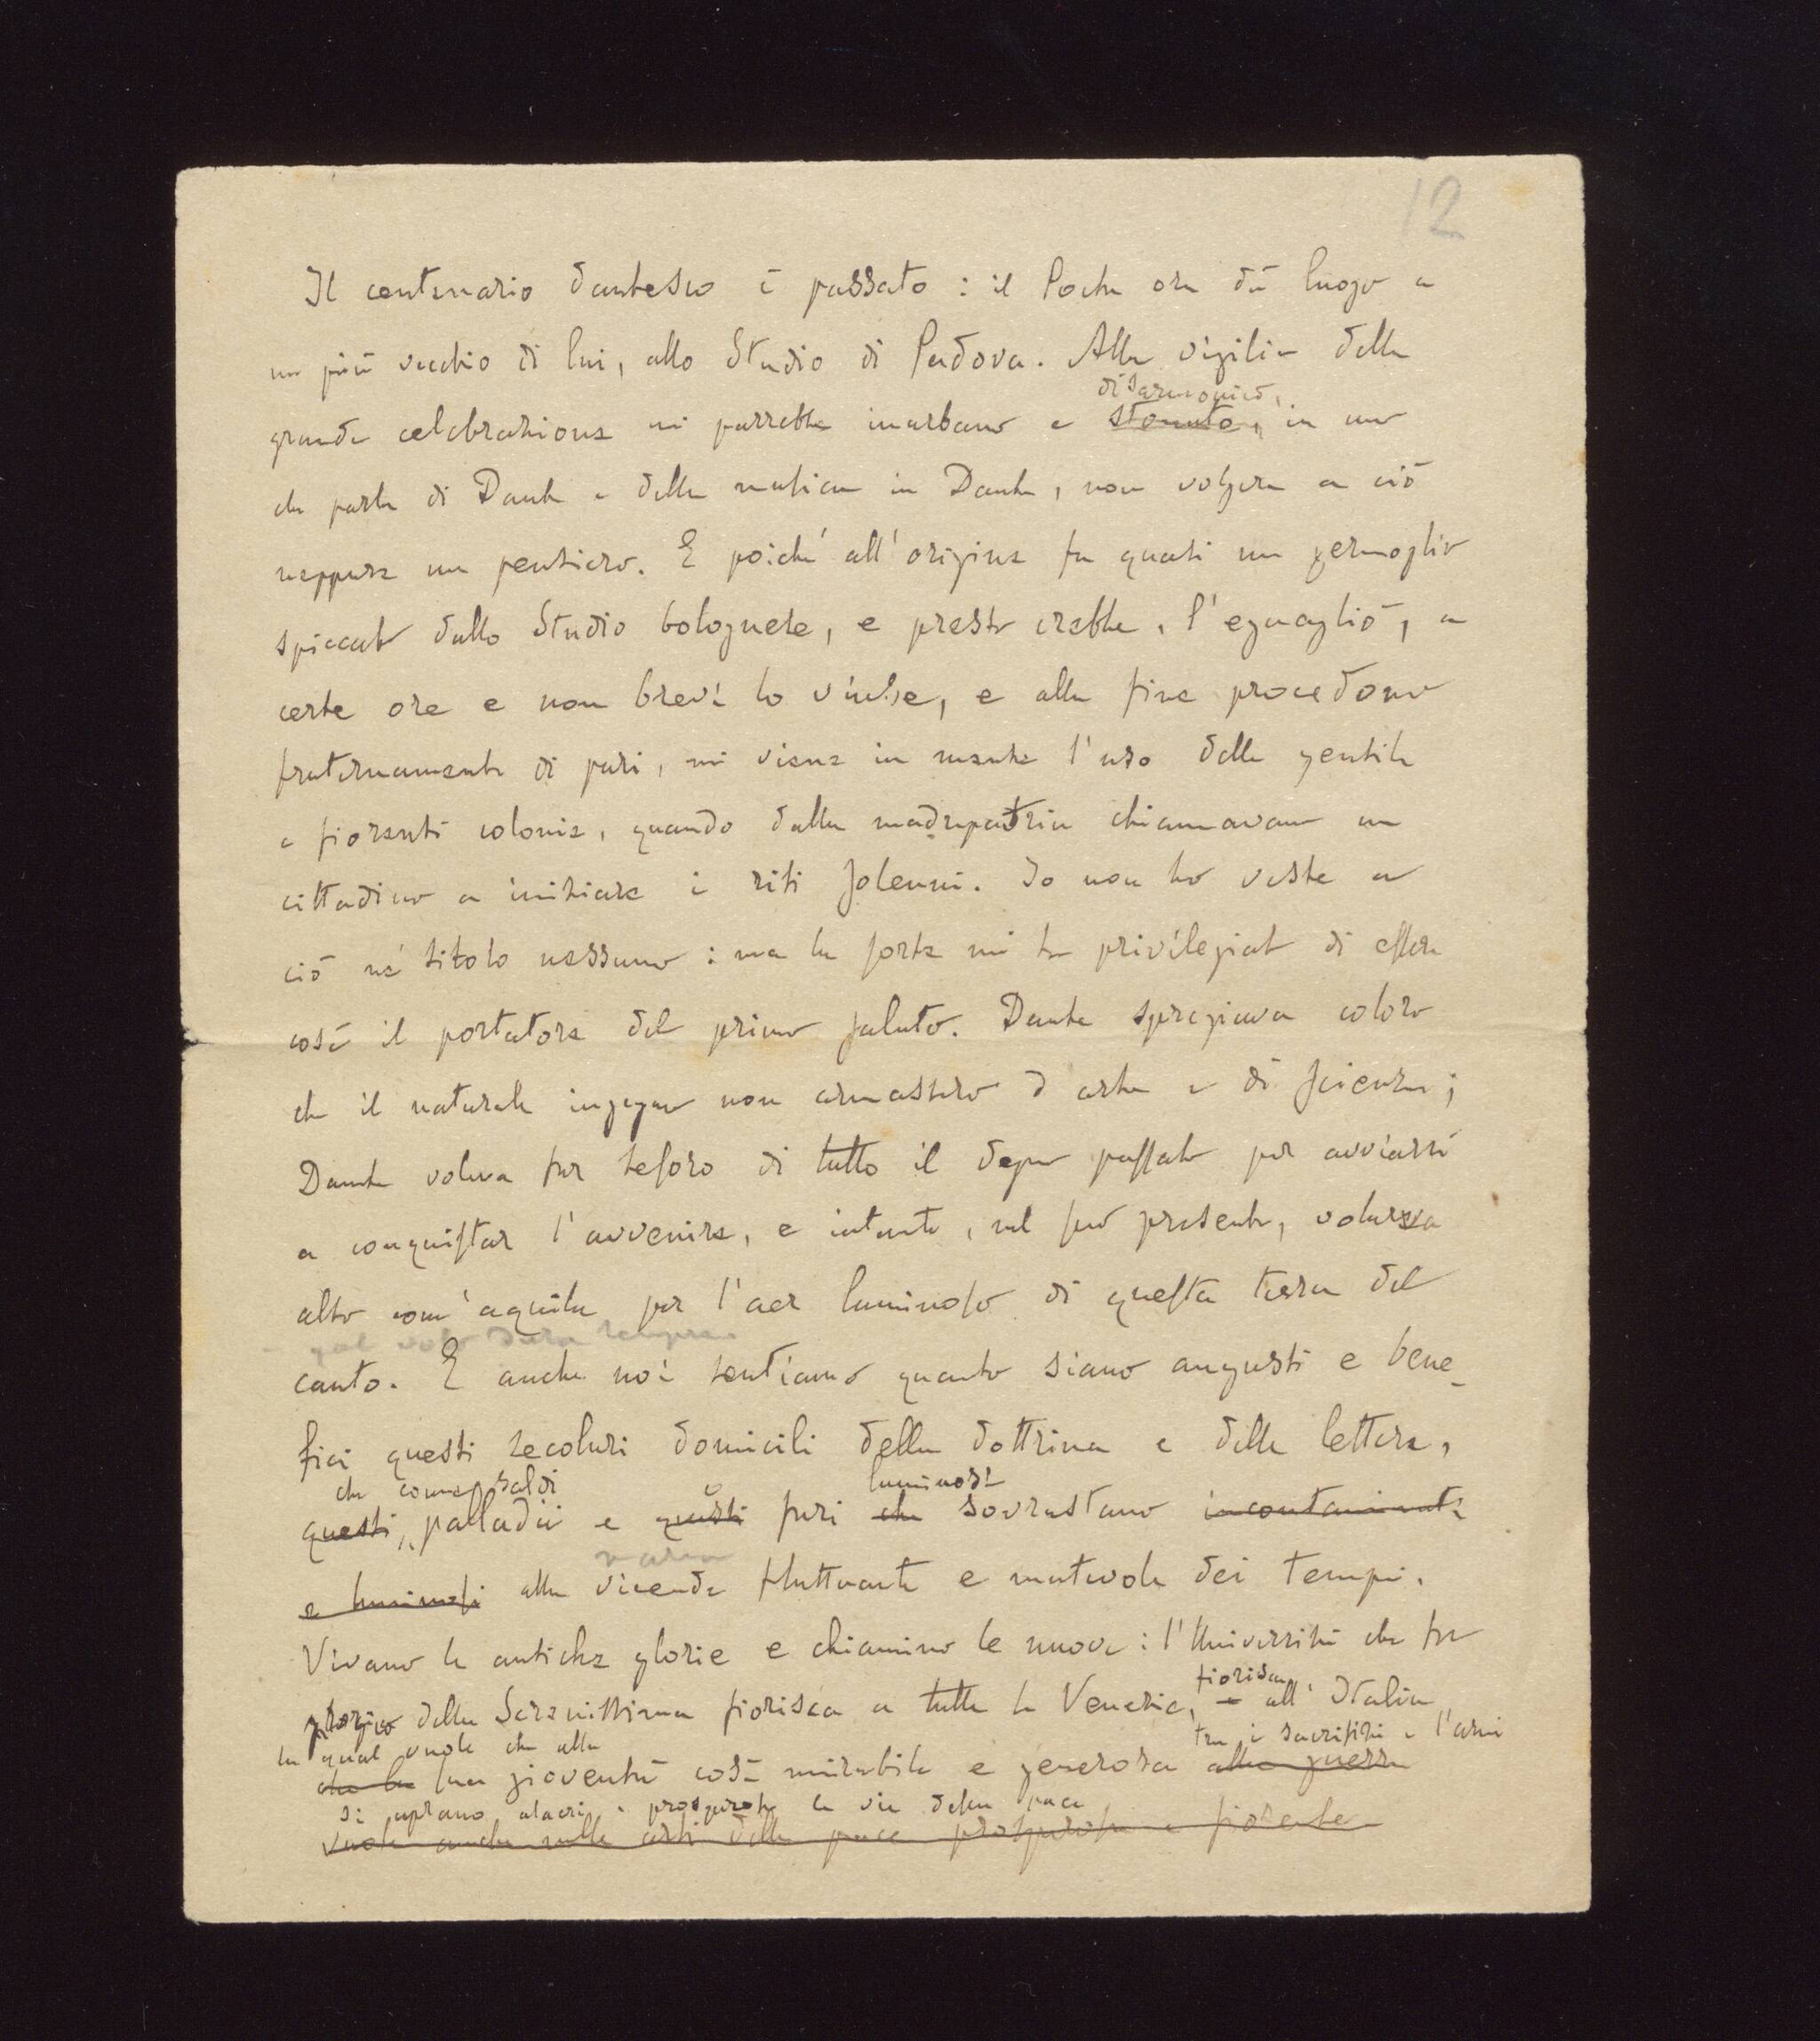 12
Il centenario dantesco è passato : il Poeta ora dà luogo a
un più vecchio di lui, allo Studio di Padova. Alla vigilia della
disarmonico,
grande celebrazione mi parrebbe inurbano e stonato, in uno
che parla di Dante e della musica in Dante, non volgere a ciò
neppure un pensiero. E poiché all'origine fu quasi un germoglio
spiccato dallo Studio bolognese, e presto crebbe, l'eguagliò, a
certe ore e non brevi lo vinse, e alla fine procedono
fraternamente di pari, mi viene in mente l'uso delle gentili
e fiorenti colonie, quando dalla madrepatria chiamavano un
cittadino a iniziare i riti solenni. Io non ho veste a
ciò né titolo nessuno : ma la sorte mi ha privilegiato di essere
così il portatore del primo saluto. Dante spregiava coloro
che il naturale ingegno non armassero d'arte e di scienza ;
Dante voleva far tesoro di tutto il degno passato per avviarsi
a conquistar l'avvenire, e intanto, nel suo presente, volava
alto com'aquila per l'aer luminoso di questa terra del
volo dura sempre
canto. E anche noi sentiamo quanto siano augusti e bene-
fici questi secolari domicili della dottrina e delle lettere,
che come saldi luminosi
questi palladii e questi fari che sovrastano incontaminati
varia
e luminosi alla vicenda fluttuante e mutevole dei tempi.
Vivano le antiche glorie e chiamino le nuove : l'Università che fu
fiorisca
della Serenissima fiorisca a tutte le Venezie, e all'Italia
la qual vuole che alla tra i sacrifizi e l'armi
che la sua gioventù così mirabile e generosa alla guerra
si aprano alacri e prosperose le vie della pace
vuole anche nelle arti della pace prosperosa e fiorente